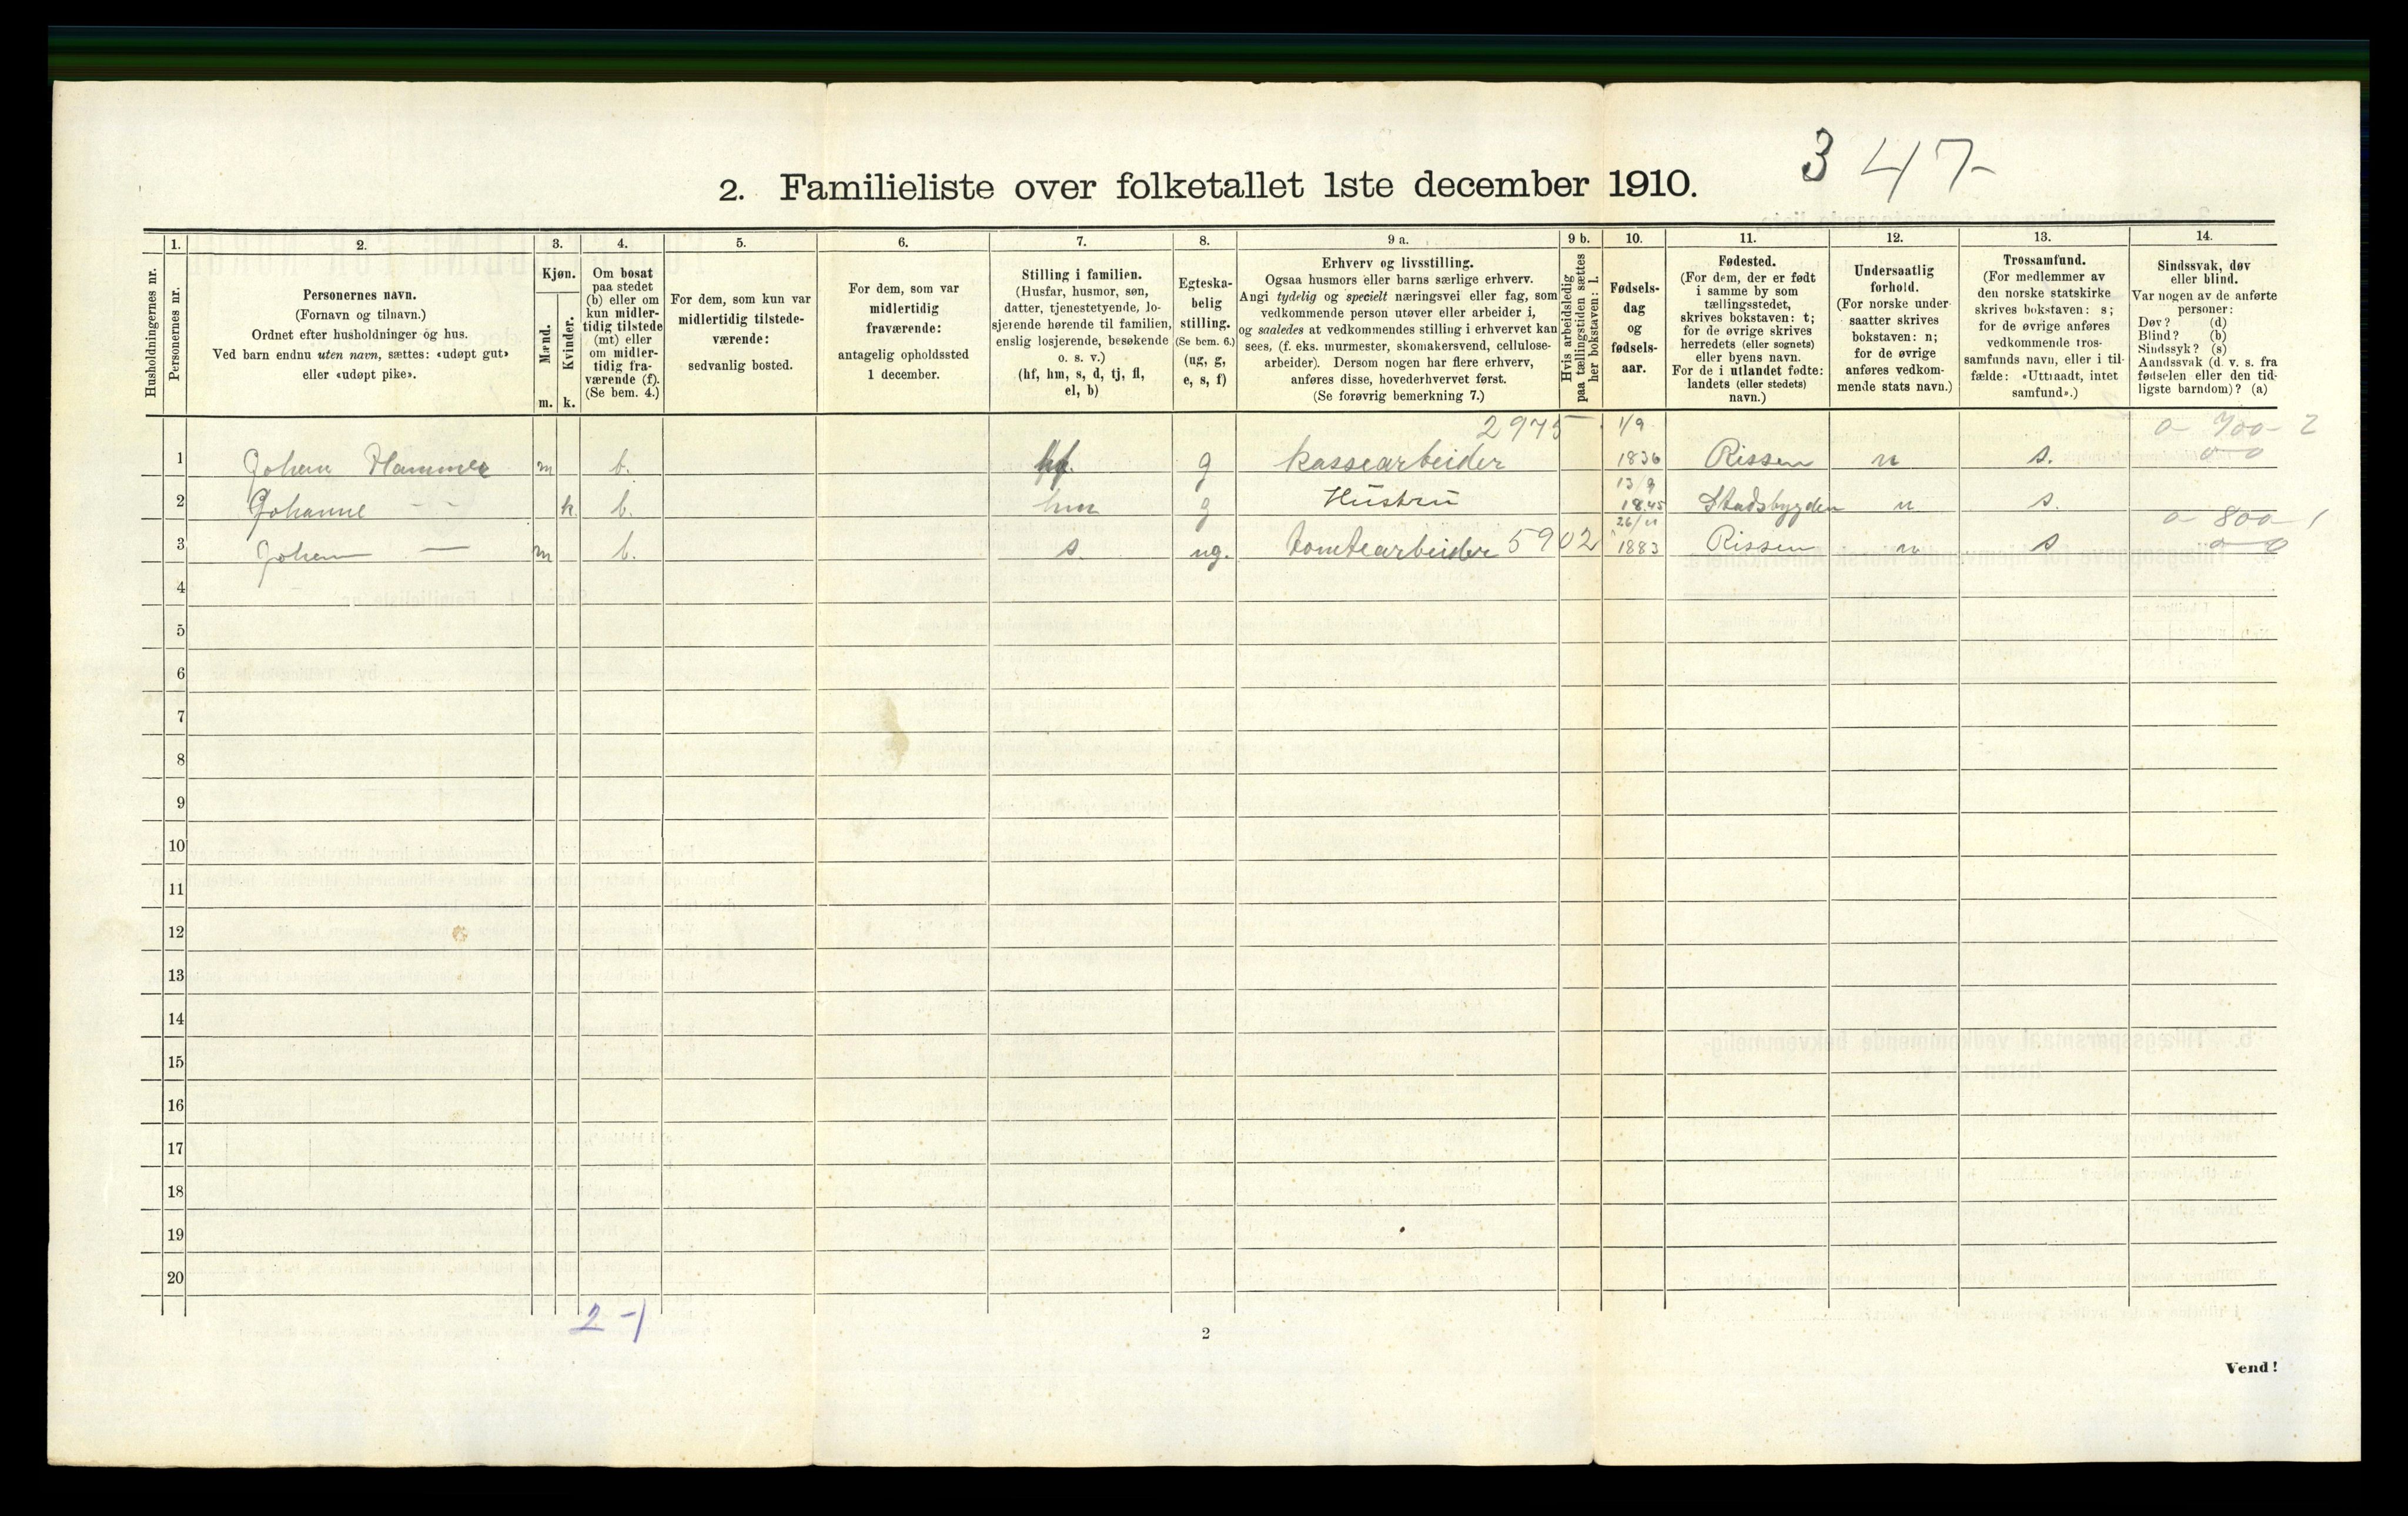 347-
2. Familieliste over folketallet 1ste december 1910.
Husholdningernes nr.
1. Personernes nr.
2. Personernes navn.
(Fornavn og tilnavn.)
Ordnet efter husholdninger og hus.
Ved barn endnu uten navn, sættes: «udøpt gut»
eller «udøpt pike».
3. Kjøn.
Mænd. m.
Kvinder. k.
4. Om bosat
paa stedet
(b) eller om
kun midler-
tidig tilstede
(mt) eller
om midler-
tidig fra-
værende (f).
(Se bem. 4.)
5. For dem, som kun var
midlertidig tilstede-
værende:
sedvanlig bosted.
6. For dem, som var
midlertidig
fraværende:
antagelig opholdssted
1 december.
7. Stilling i familien.
(Husfar, husmor, søn,
datter, tjenestetyende, lo-
sjerende hørende til familien,
enslig losjerende, besøkende
o. s. v.)
(hf, hm, s, d, tj, fl,
el, b)
8. Egteska-
belig
stilling.
(Se bem. 6.)
(ug, g,
e, s, f)
9 a. Erhverv og livsstilling.
Ogsaa husmors eller barns særlige erhverv.
Angi tydelig og specielt næringsvei eller fag, som
vedkommende person utøver eller arbeider i,
og saaledes at vedkommendes stilling i erhvervet kan
sees, (f. eks. murmester, skomakersvend, cellulose-
arbeider). Dersom nogen har flere erhverv,
anføres disse, hovederhvervet først.
(Se forøvrig bemerkning 7.)
9 b. Hvis arbeidsledig
paa tællingstiden sættes
her bokstaven: l.
10. Fødsels-
dag
og
fødsels-
aar.
11. Fødested.
(For dem, der er født
i samme by som
tællingsstedet,
skrives bokstaven: t;
for de øvrige skrives
herredets (eller sognets)
eller byens navn.
For de i utlandet fødte:
landets (eller stedets)
navn.)
12. Undersaatlig
forhold.
(For norske under-
saatter skrives
bokstaven: n;
for de øvrige
anføres vedkom-
mende stats navn.)
13. Trossamfund.
(For medlemmer av
den norske statskirke
skrives bokstaven: s;
for de øvrige anføres
vedkommende tros-
samfunds navn, eller i til-
fælde: «Uttraadt, intet
samfund».)
14. Sindssvak, døv
eller blind.
Var nogen av de anførte
personer:
Døv? (d)
Blind? (b)
Sindssyk? (s)
Aandssvak (d. v. s. fra
fødselen eller den tid-
ligste barndom)? (a)
2975 1/9 0- 700- 2
1 Johan Hammer m b. hf. g kassearbeider 1836 Rissen n s. 0 0
13/9
2 Johanne - - k b. hm g Hustru 1845 Stadsbygden n s.
26/11 0- 800- 1
3 Johan — m b. s. ug. tomtearbeider 5902 1883 Rissen n s 0 0
4
5
6
7
8
9
10
11
12
13
14
15
16
17
18
19
20
2-1
2
Vend!